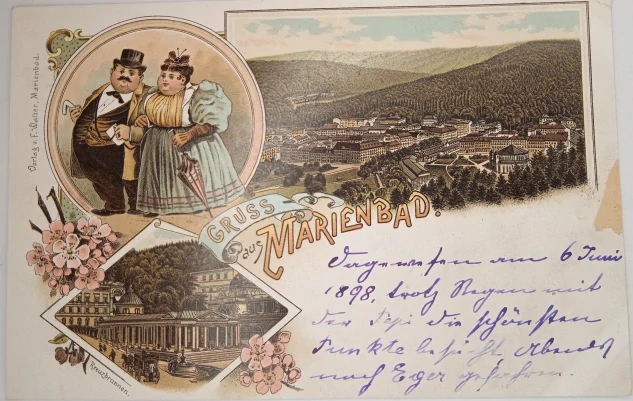 Verlag v. F. Walter, Marienbad.
GRUSS
aus MARIENBAD.
Dagewesen am 6 Juni
1898, trotz Regen mit
der Pepi die schönsten
Punkte besucht. Abends
nach Eger gefahren.
Kreuzbrunnen.